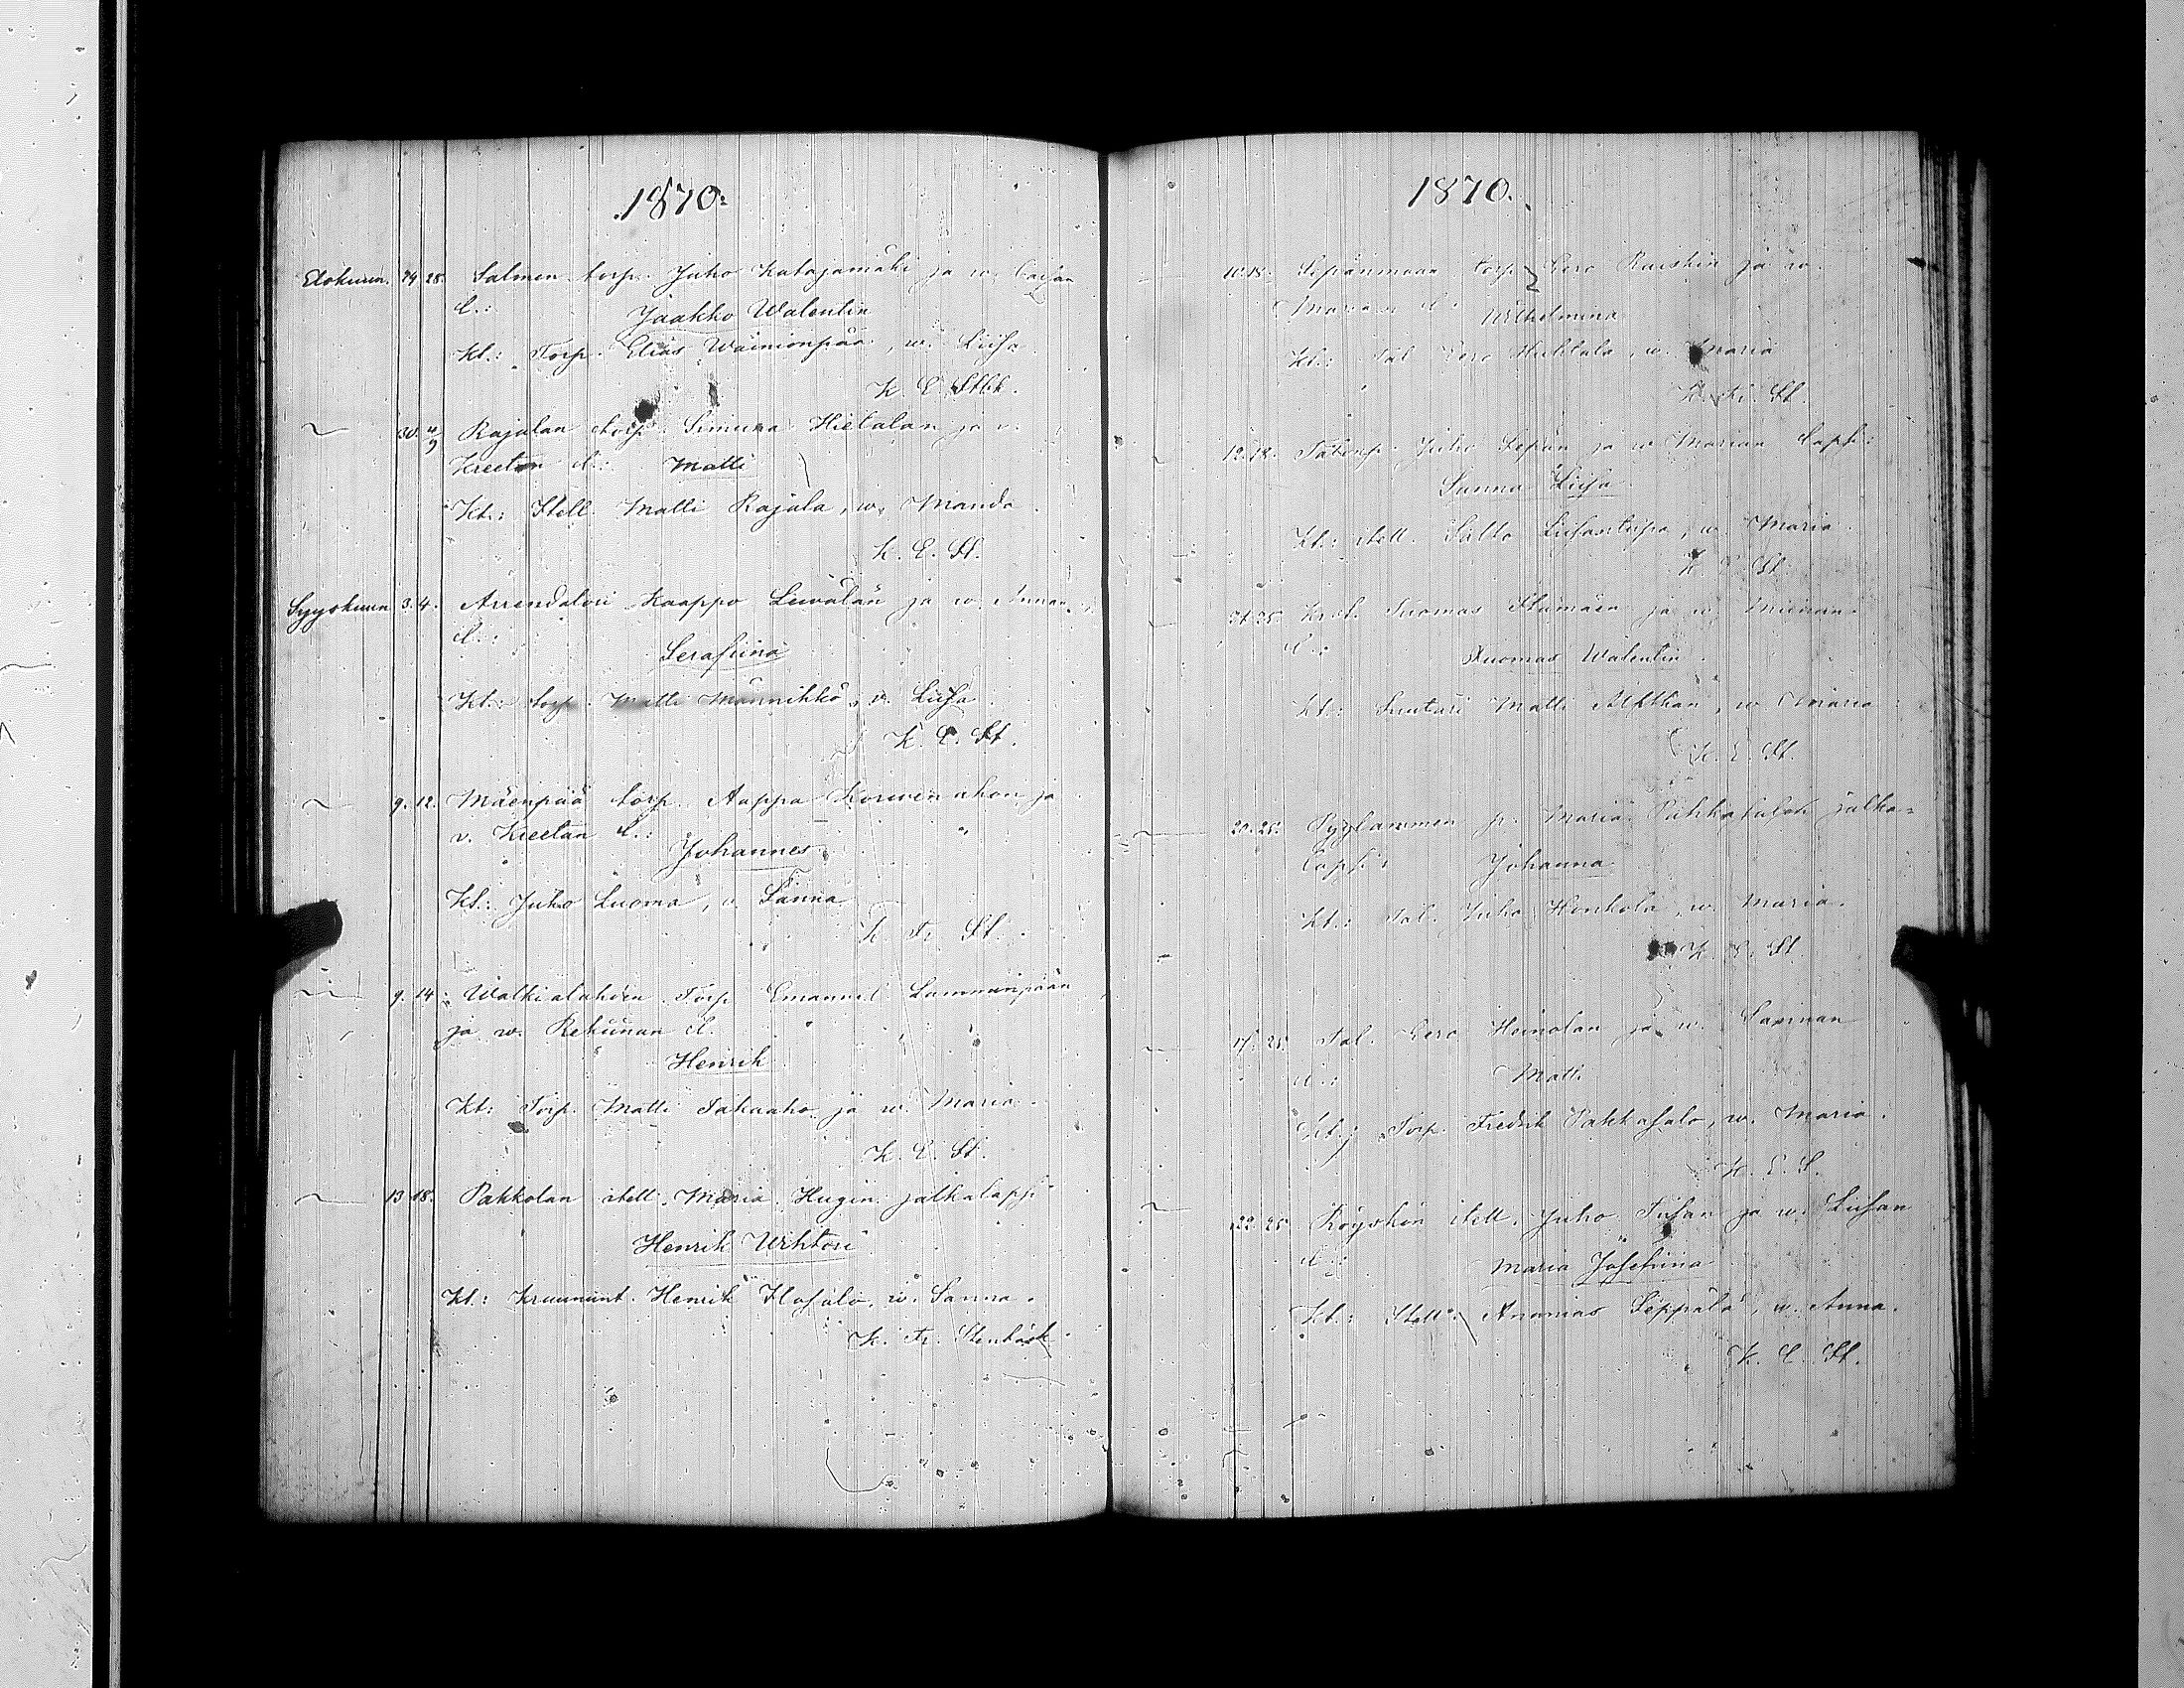 1870.
Elokuun. 24 28. Salmen torp. Juho Katajamäki ja w. Caisan
l.: Jaakko Walentin
Kt.: Torp. Elias Wäinionpää, w. Liisa
K. E. Stbk.
30. 4/9 Rajalan torp. Simuna Hietalan ja v.
Kreetan l.: Matti
Kt.: Itell. Matti Rajala, w. Manda
K. E. St.
Syyskuun 3. 4. Arrendatori Kaappo Luwalan ja w. Annan
l.:
Serafiina
Kt.: torp. Matti Männikkö, v. Liisa
K. E. St.
9. 12. Mäenpää torp. Aappa Korwenahon ja
v. Kreetan l.:
Johannes
Kt.: Juho Luoma, v. Sanna
K. Fr. St.
9. 14. Walkialahden Torp. Emanuel Lamminpään
ja w. Retriinan l.
Henrik
Kt: Torp. Matti Takaaho ja w. Maria
K. E. St.
13 18. Pakkolan itell. Maria Hugin jalkalapsi
Henrik Wihtori
Kt.: Kruunünt. Henrik Ilosalo, w. Sanna.
K. Fr. Stenbäck
1870.
10. 18. Sepänmaan torp. Eero Ruiskin ja w.
Marian l.: Wilhelmina
Kt.: Tal. Eero Huhtala, w. Maria
K. Fr. St.
12. 18. Juho Sepän ja w Marian lapsi:
Sanna Liisa
Kt.: itell. w. Maria
K. E. St.
25. Tuomas ja w.
l.:
Tuomas Walentin
Kt.: Suutari Matti w. Maria
K. E. St.
20. 25. Pyylammen p. Maria Pakkasalon jalka-
lapsi: Johanna
Kt.: Tal. Juho Honkola, w. Maria.
K. E. St.
17. 25. Tal. Eero Heinolan ja w. Sannan
l.: Matti
Kt.: Torp. Fredrik Pakkasalo, w. Maria.
K. E. S.
22. 25. Röyskön itell. Juho ja w. Liisan
l.:
Maria Josefiina
Kt.: Itell. Ananias Seppälä, w. Anna.
K. E. St.